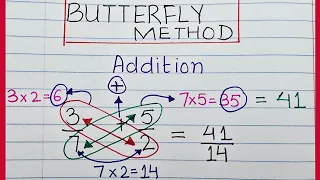 BUTTERFLY
METHOD
Addition
3×2=6 + 7×5=35 = 41
3/7 + 5/2 = 41/14
7×2=14